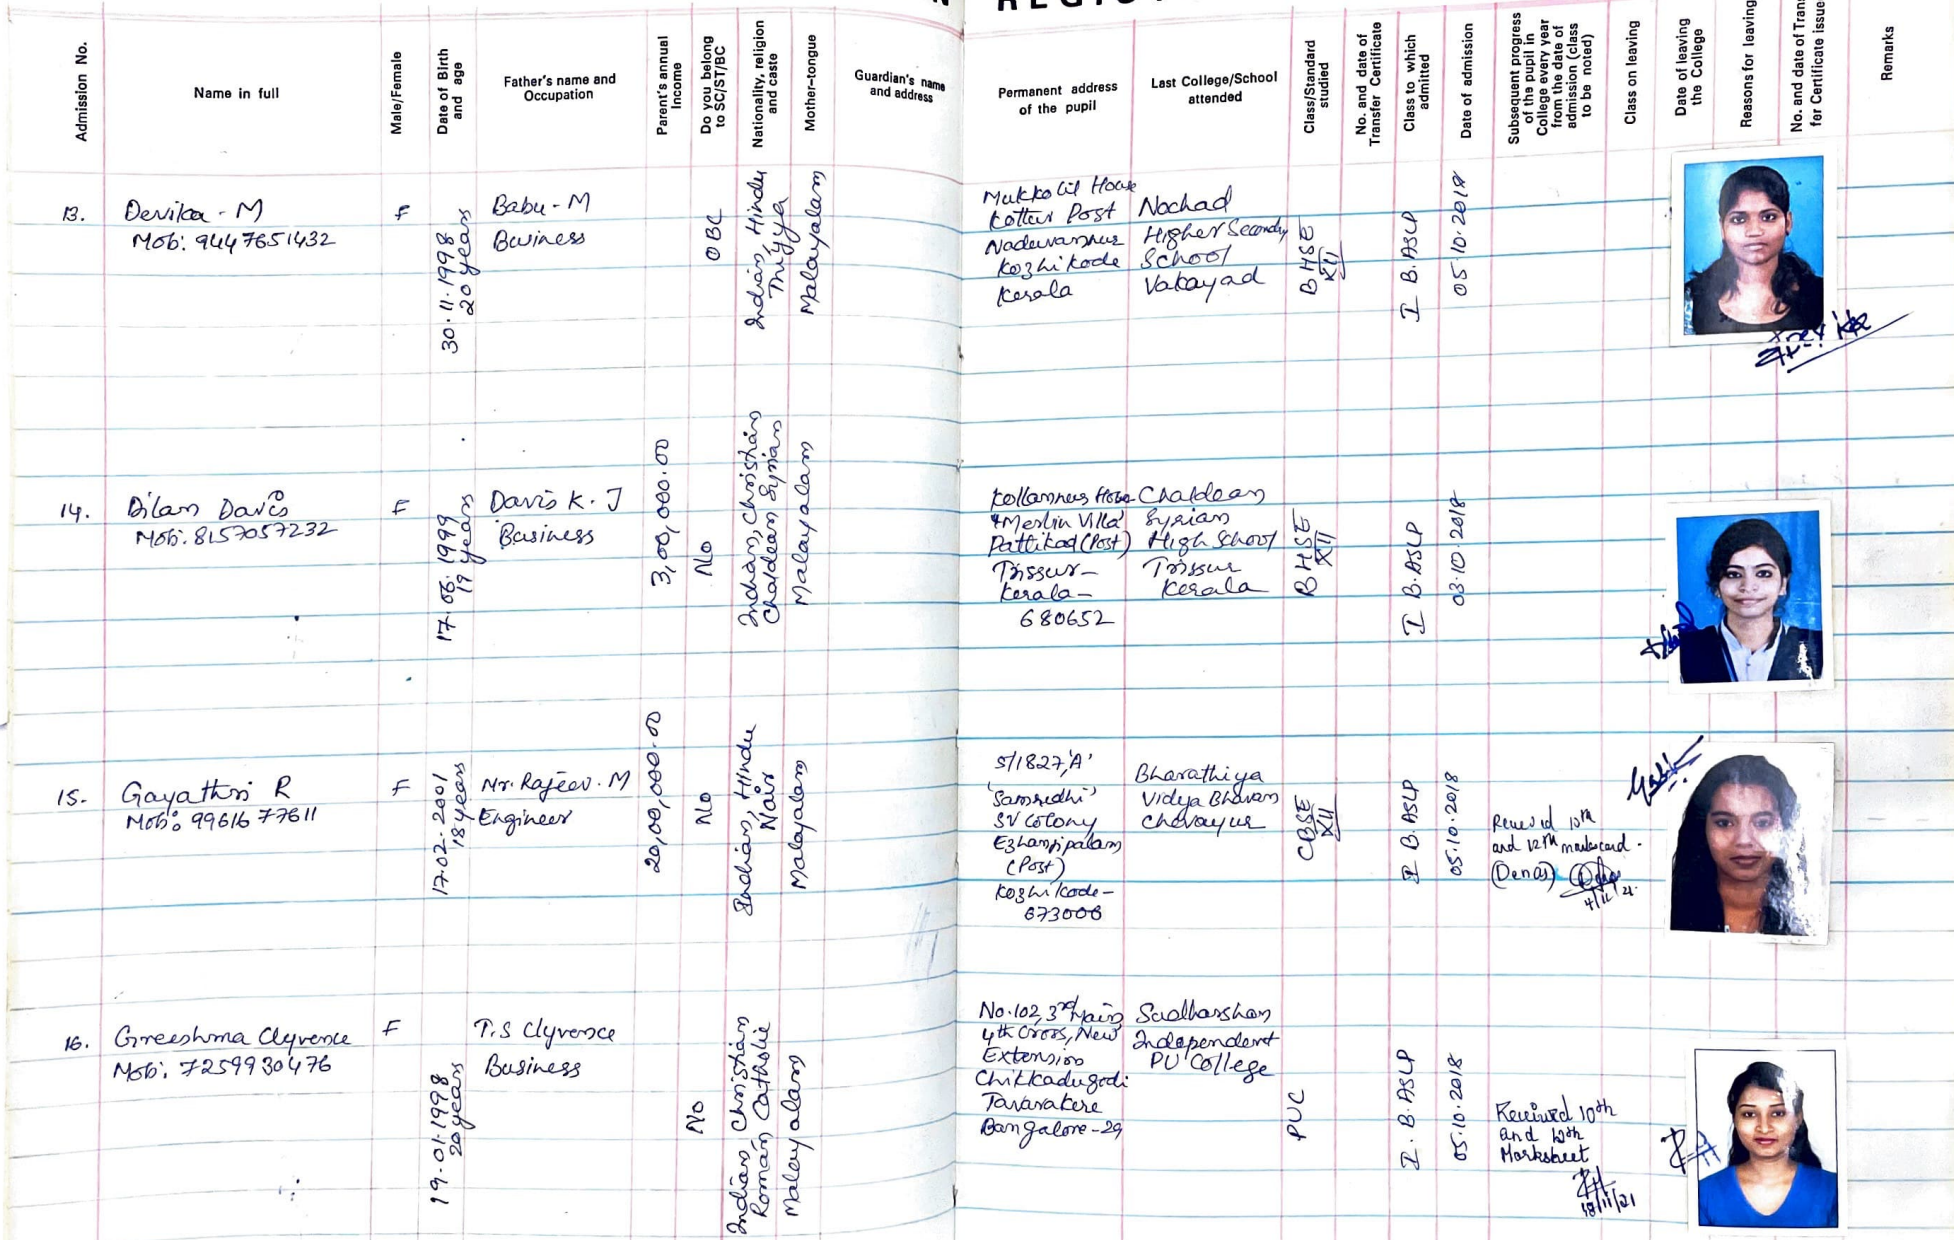 REGIS
Admission No.
Name in full
Male/Female
Date of Birth
and age
Father's name and
Occupation
Parent's annual
Income
Do you belong
to SC/ST/BC
Nationality, religion
and caste
Mother-tongue
Guardian's name
and address
Permanent address
of the pupil
Last College/School
attended
Class/Standard
studied
No. and date of
Transfer Certificate
Class to which
admitted
Date of admission
Subsequent progress
of the pupil in
College every year
from the date of
admission (class
to be noted)
Class on leaving
Date of leaving
the College
Reasons for leaving
No. and date of Tran
for Certificate issue
Remarks
13.
Devika - M
Mob: 9447651432
F
30.11.1998
20 years
Babu - M
Business
OBC
Indian, Hindu
Thiyya
Malayalam
Mukkolil House
Kottur Post
Naduvannur
Kozhikode
Kerala
Nochad
Higher Secondy
School
Vakayad
BHSE
XII
I B.ASLP
05.10.2018
14.
Dilan Davis
Mob: 8157057232
F
17.06.1999
19 years
Davis K. J
Business
3,00,000.00
No
Indian, Christian
Chaldean Syrian
Malayalam
Merlin Villa
Pattikad (Post)
Trissur-
Kerala-
680652
Chaldean
Syrian
High School
Trissur
Kerala
BHSE
XII
I B.ASLP
03.10.2018
15.
Gayathri R
Mob: 99616 77611
F
17.02.2001
18 years
Mr. Rajeev. M
Engineer
20,00,000.00
No
Indian, Hindu
Nair
Malayalam
5/1827,'A'
'Samridhi'
SV Colony
Ezhanjipalam
(Post)
Kozhikode-
673006
Bharathiya
Vidya Bhavan
Chevayur
CBSE
XII
I B.ASLP
05.10.2018
Received 10th
and 12th markscard.
(Denas)
4/11/21
16.
Greeshma Clyvence
Mob: 7259930476
F
19.01.1998
20 years
T.S Clyvence
Business
No
Indian, Christian
Roman Catholic
Malayalam
No.102, 3rd Main
4th Cross, New
Extension
Chikkadugodi
Tavarakere
Bangalore-29
Sudharshan
Independent
PU College
PUC
I. B.ASLP
05.10.2018
Received 10th
and 12th
Marksheet
18/11/21